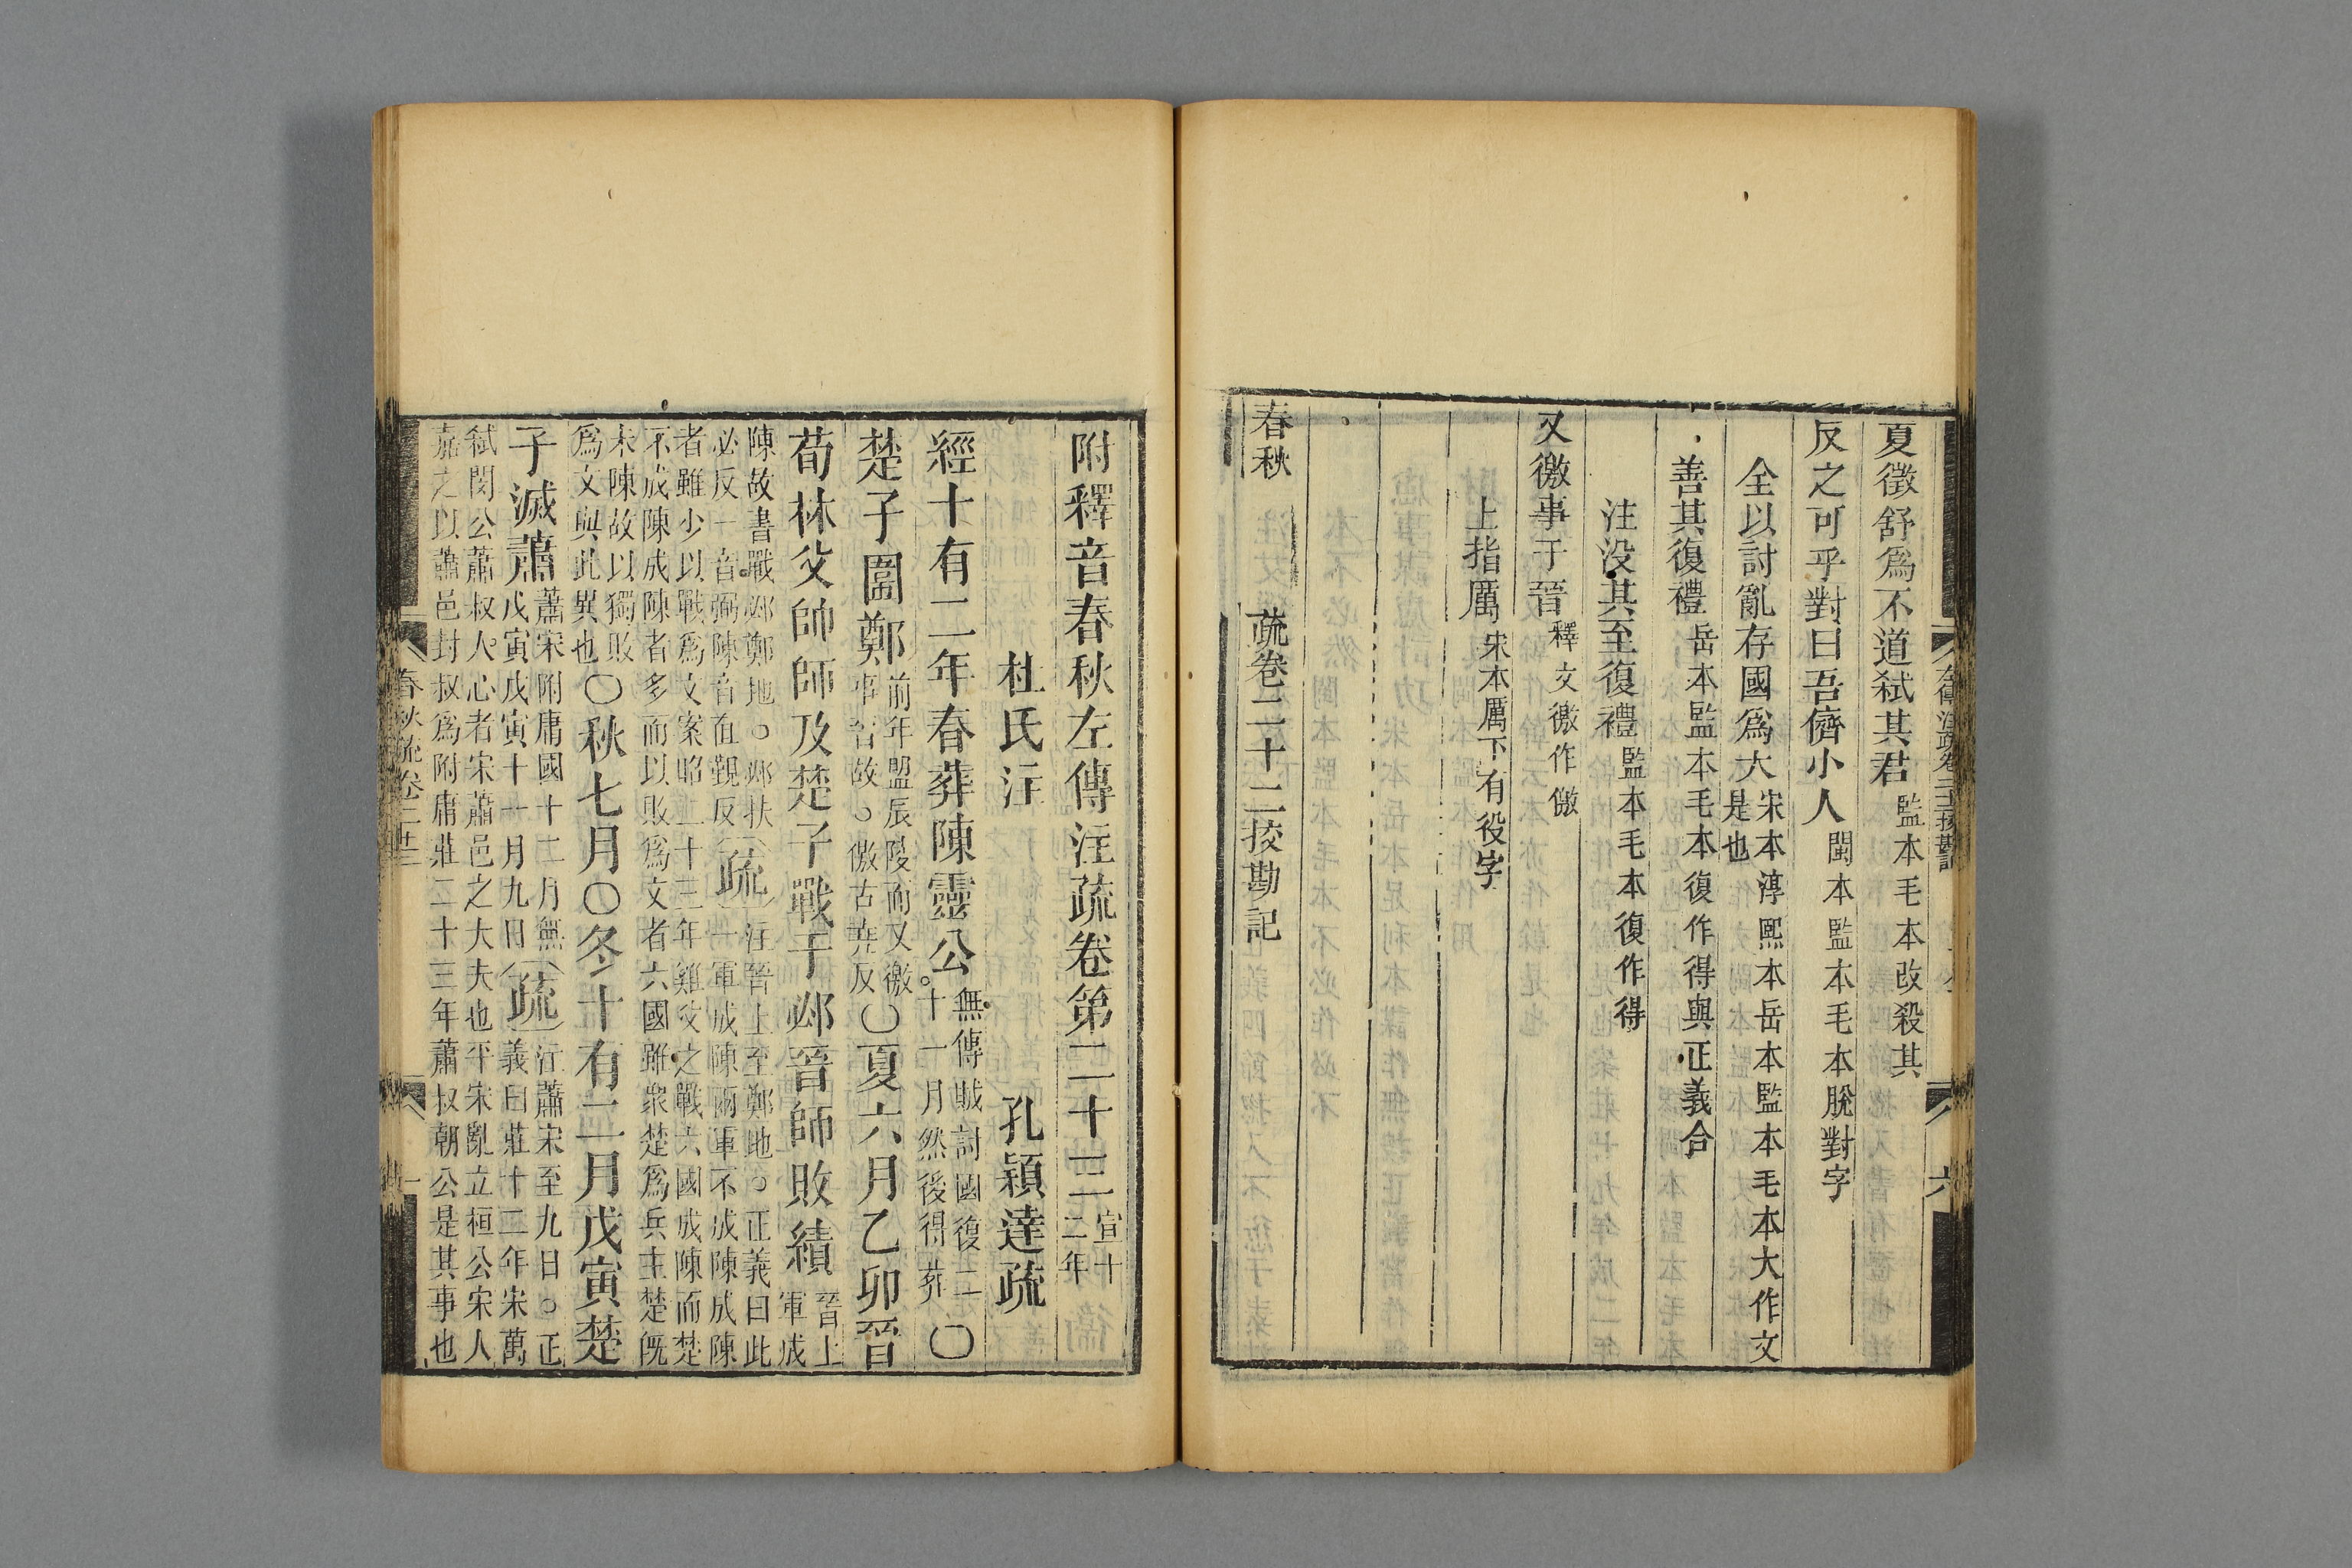 夏徵舒爲不道弒其君監本毛本改殺其
反之可乎對曰吾儕小人閩本監本毛本脫對字
全以討亂存國爲大宋本淳熙本岳本監本毛本大作文
是也
善其復禮岳本監本毛本復作得與正義合
注没其至復禮監本毛本復作得
又徼事于晉釋文徼作儌
上指厲宋本厲下有役字
春秋疏卷二十二挍勘記
附釋音春秋左傳注疏卷第二十三宣十二年
杜氏注 孔穎達疏
經十有二年春葬陳靈公無傳賊討國復二
十一月然後得葬○
楚子圍鄭前年盟辰陵而又徼
事晉故○儌古堯反○夏六月乙卯晉
荀林父帥師及楚子戰于邲晉師敗績晉上
軍成
陳故書戰邲鄭地○邲扶
必反一音弼陳音直覲反疏注晉上至鄭地○正義曰此
一軍成陳兩軍不成陳成陳
者雖少以戰爲文案昭二十三年雞父之戰六國成陳而楚
不成陳成陳者多而以敗爲文者六國雖衆楚爲兵主楚旣
未陳故以獨敗
爲文與此異也○秋七月○冬十有二月戊寅楚
子滅蕭蕭宋附庸國十二月無
戊寅戊寅十一月九日疏注蕭宋至九日○正
義曰莊十二年宋萬
弒閔公蕭叔大心者宋蕭邑之大夫也平宋亂立桓公宋人
嘉之以蕭邑封叔爲附庸莊二十三年蕭叔朝公是其事也
春秋疏卷二十三
一